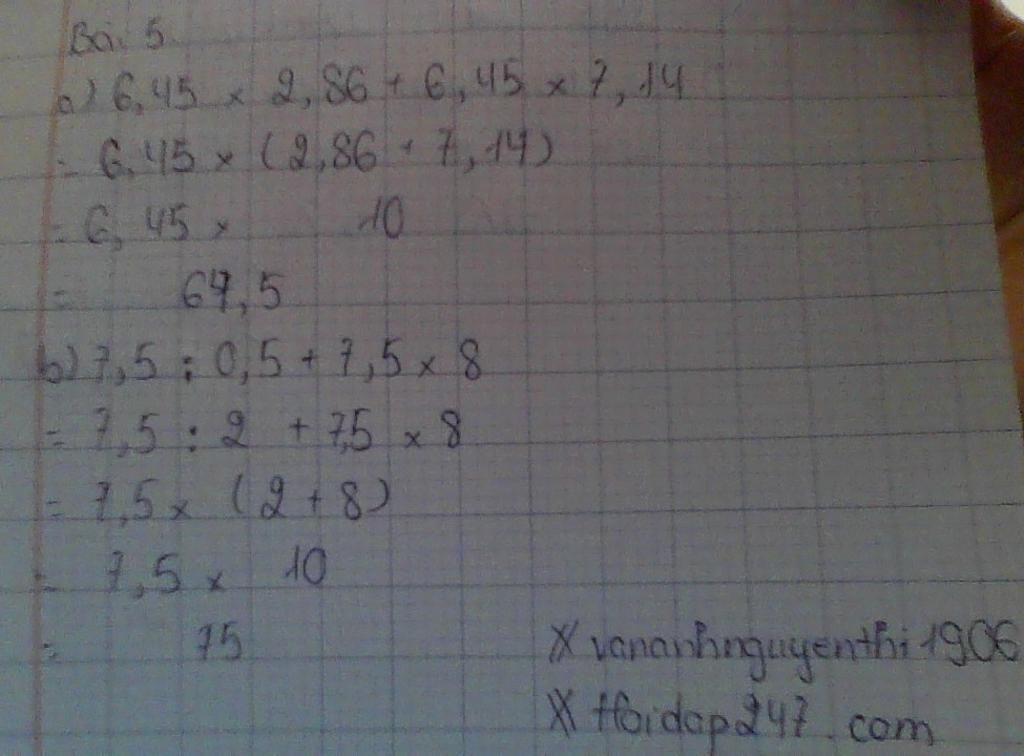 Bài 5
a) 6,45 x 2,86 + 6,45 x 7,14
= 6,45 x (2,86 + 7,14)
= 6,45 x 10
= 67,5
b) 7,5 : 0,5 + 7,5 x 8
= 7,5 : 2 + 7,5 x 8
= 7,5 x (2 + 8)
= 7,5 x 10
= 75
X vananhnguyenthi1906
X hoidap247.com